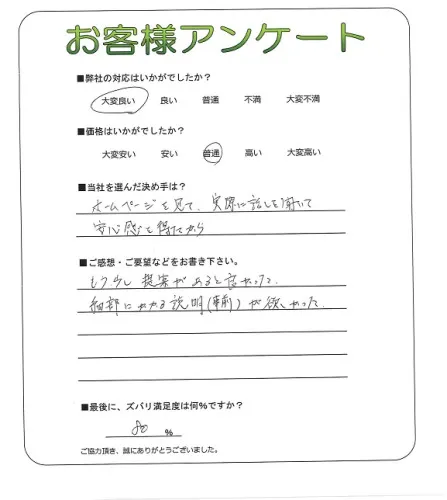 お客様アンケート
■弊社の対応はいかがでしたか？
大変良い 良い 普通 不満 大変不満
■価格はいかがでしたか？
大変安い 安い 普通 高い 大変高い
■当社を選んだ決め手は？
ホームページを見て、実際に話しを聞いて
安心感を得てから
■ご感想・ご要望などをお書き下さい。
もう少し提案があると良かった、
細部にわたる説明(事前)が欲しかった.
■最後に、ズバリ満足度は何%ですか？
80 %
ご協力頂き、誠にありがとうございました。